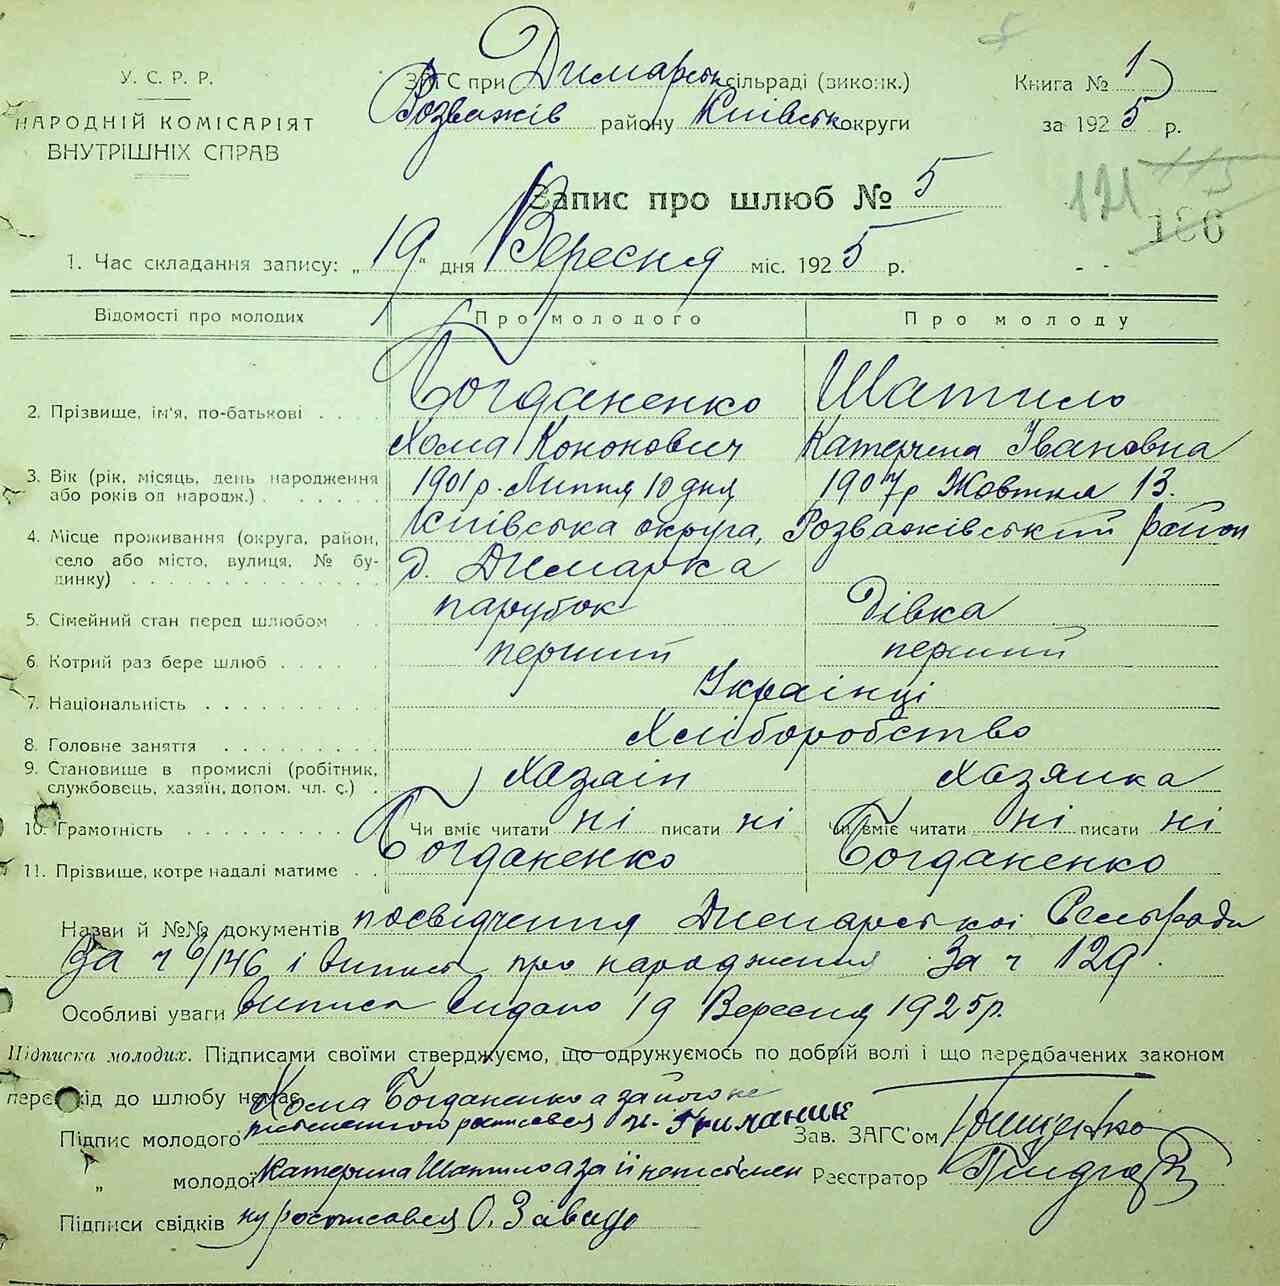 У. С. Р. Р.
НАРОДНІЙ КОМІСАРІЯТ
ВНУТРІШНІХ СПРАВ
ЗАГС при Димарськ сільраді (виконк.)
Розважів району Київськ округи
Книга № 1
за 1925 р.
Запис про шлюб № 5
121 115
186
1. Час складання запису: „19“ дня Вересня міс. 1925 р.
Відомості про молодих Про молодого Про молоду
2. Прізвище, ім'я, по-батькові . . . Богданенко Шатило
Хома Кононович Катерина Івановна
3. Вік (рік, місяць, день народження або років од народж.) . . . . . . 1901 р. Липня 10 дня 1907 р Жовтня 13.
4. Місце проживання (округа, район, село або місто, вулиця, № будинку) . . . . . Київська округа, Розважівський район
д. Димарка
5. Сімейний стан перед шлюбом . . парубок дівка
6. Котрий раз бере шлюб . . . . . перший перший
7. Національність . . . . . . . . Українці
8. Головне заняття . . . . . . . Хліборобство
9. Становище в промислі (робітник, службовець, хазяїн, допом. чл. с.) . хазаін хазяйка
10. Грамотність . . . . . . . . . Чи вміє читати ні писати ні Чи вміє читати ні писати ні
11. Прізвище, котре надалі матиме . . Богданенко Богданенко
Назви й №№ документів посвідчення Димарськоі Сельради
За ч 6/146 і випись про народження За ч 129.
Особливі уваги виписа видано 19 Вересня 1925 р.
Підписка молодих. Підписами своїми стверджуємо, що одружуємось по добрій волі і що передбачених законом
перешкід до шлюбу немає.
Хома Богданенко а за його не
Підпис молодого письменного росписався
Зав. ЗАГС'ом
„ молодої Катерина Шатило а за її неписьмен Реєстратор
Підписи свідків ну росписався О.